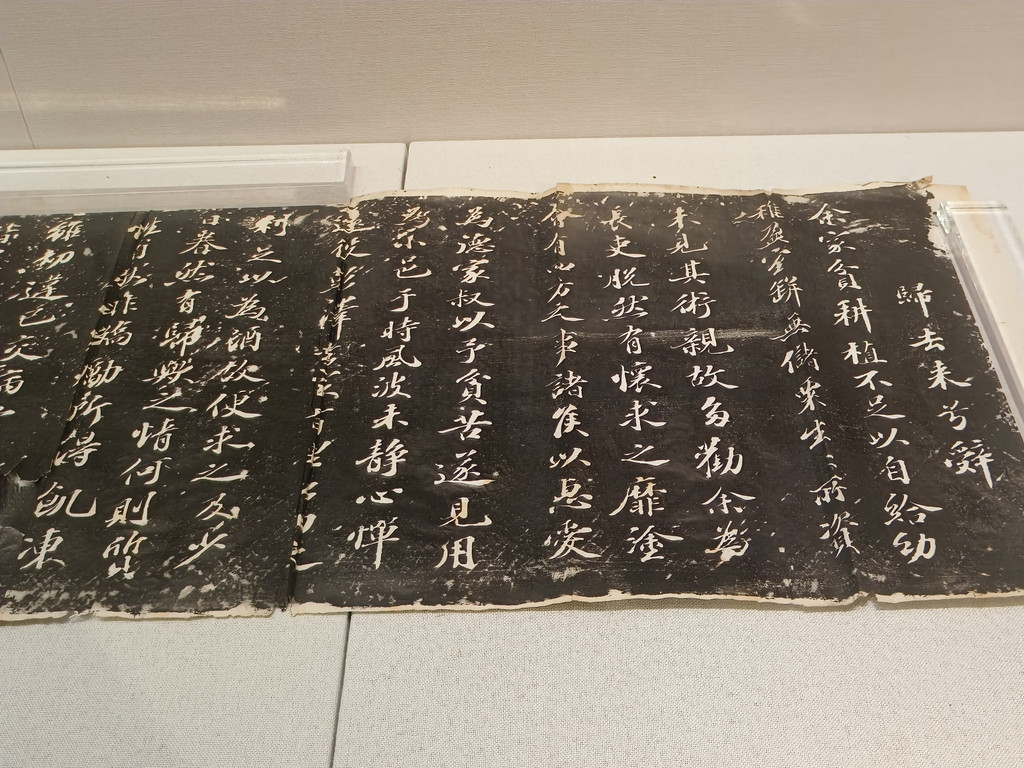 歸去来兮辭
余家貧耕植不足以自給幼
稚盈室缾無儲粟生〻所資
未見其術親故多勸余為
長吏脫然有懷求之靡塗
會有四方之事諸侯以惠愛
為德家叔以予貧苦遂見用
為小邑于時風波未靜心憚
遠役彭澤去家百里公田之
利之以為酒故便求之及少
日眷然有歸與之情何則質
性自然非矯勵所得飢凍
雖切違己交病